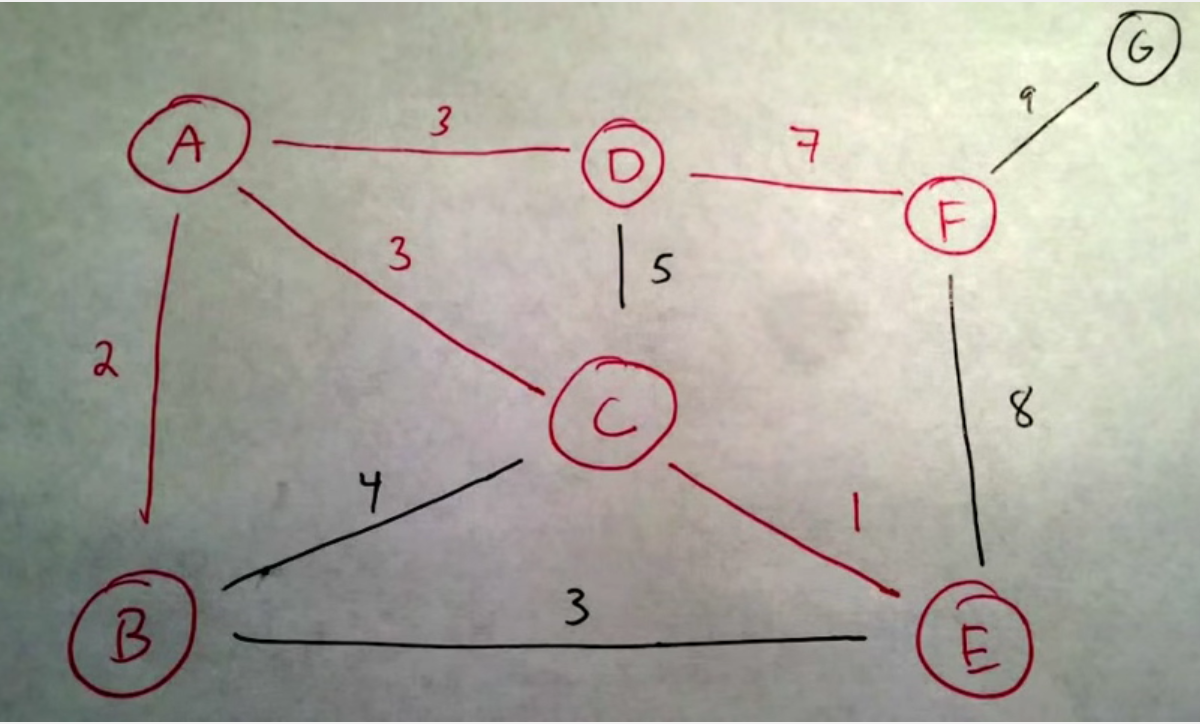 G
9
A
3
D
7
F
3
5
2
C
8
4
1
3
B
E